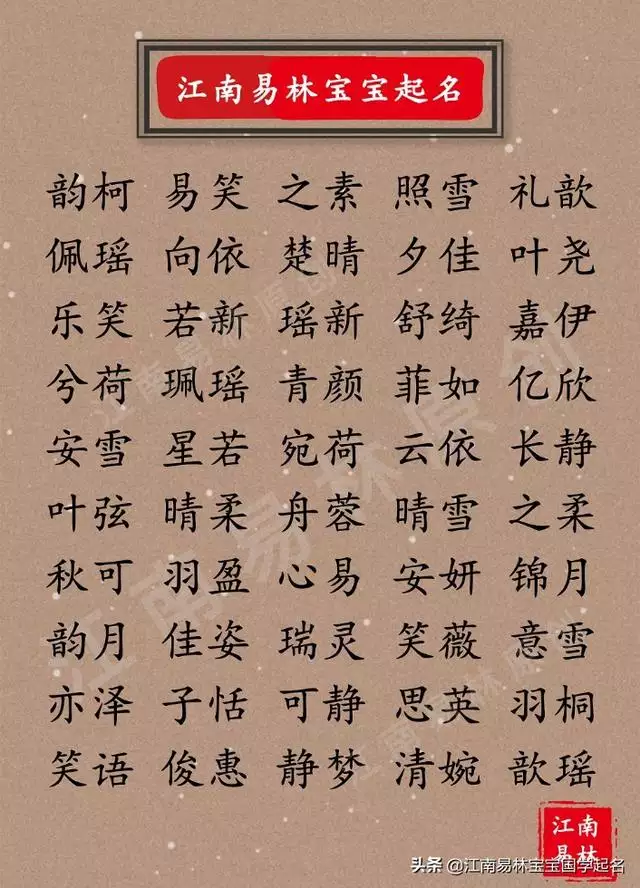 江南易林宝宝起名
韵柯 易笑 之素 照雪 礼歆
佩瑶 向依 楚晴 夕佳 叶尧
乐笑 若新 瑶新 舒绮 嘉伊
兮荷 珮瑶 青颜 菲如 亿欣
安雪 星若 宛荷 云依 长静
叶弦 晴柔 舟蓉 晴雪 之柔
秋可 羽盈 心易 安妍 锦月
韵月 佳姿 瑞灵 笑薇 意雪
亦泽 子恬 可静 思英 羽桐
笑语 俊惠 静梦 清婉 歆瑶
江南易林原创
江南
易林
头条 @江南易林宝宝国学起名